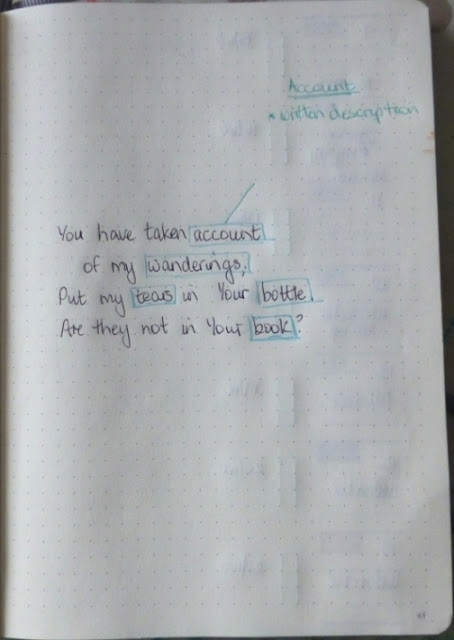 Account
* written description
You have taken account
of my wanderings,
Put my tears in Your bottle.
Are they not in Your book?